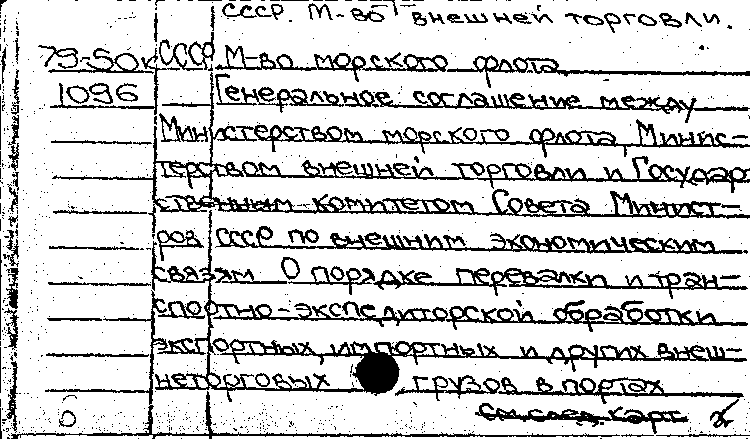 СССР. М-во внешней торговли.
79-50к СССР. М-во морского флота.
1096 Генеральное соглашение между
Министерством морского флота, Минис-
терством внешней торговли и Государ-
ственным комитетом Совета Минист-
ров СССР по внешним экономическим
связям О порядке перевалки и тран-
спортно-экспедиторской обработки
экспортных, импортных и других внеш-
неторговых грузов в портах
См. след. карт.